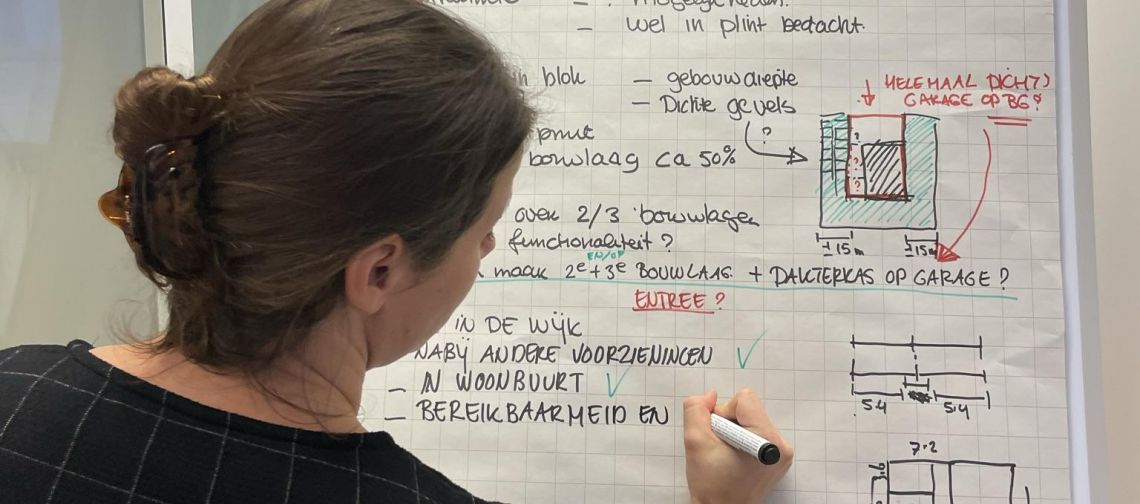 – : mogelijkheden.
– wel in plint bedacht.
blok – gebouwdiepte
– Dichte gevels
?
HELEMAAL DICHT?)
GARAGE OP BG?
bouwlaag ca 50%
over 2/3 bouwlagen
functionaliteit?
EN/OF
maak 2e+3e BOUWLAAG + DAKTERRAS OP GARAGE?
± 15m ± 15m
ENTREE?
IN DE WIJK
NABIJ ANDERE VOORZIENINGEN
– IN WOONBUURT
– BEREIKBAARHEID EN
5.4 5.4
7.2